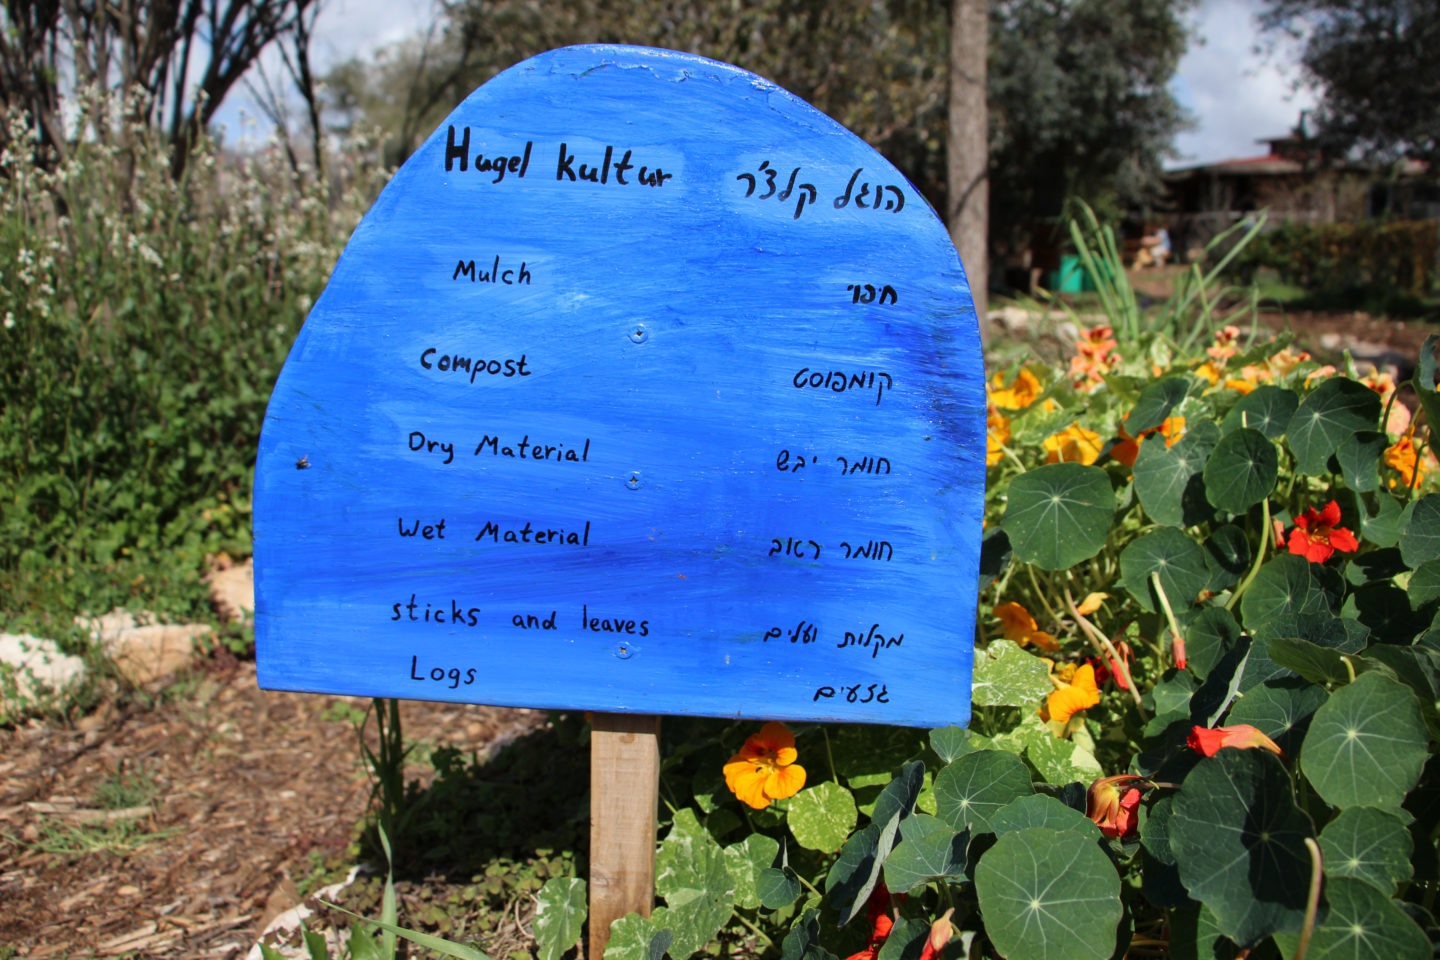 Hugel kultur הוגל קלצ'ר
Mulch חיפוי
Compost קומפוסט
Dry Material חומר יבש
Wet Material חומר ראוב
sticks and leaves מקלות ועלים
Logs גזעים